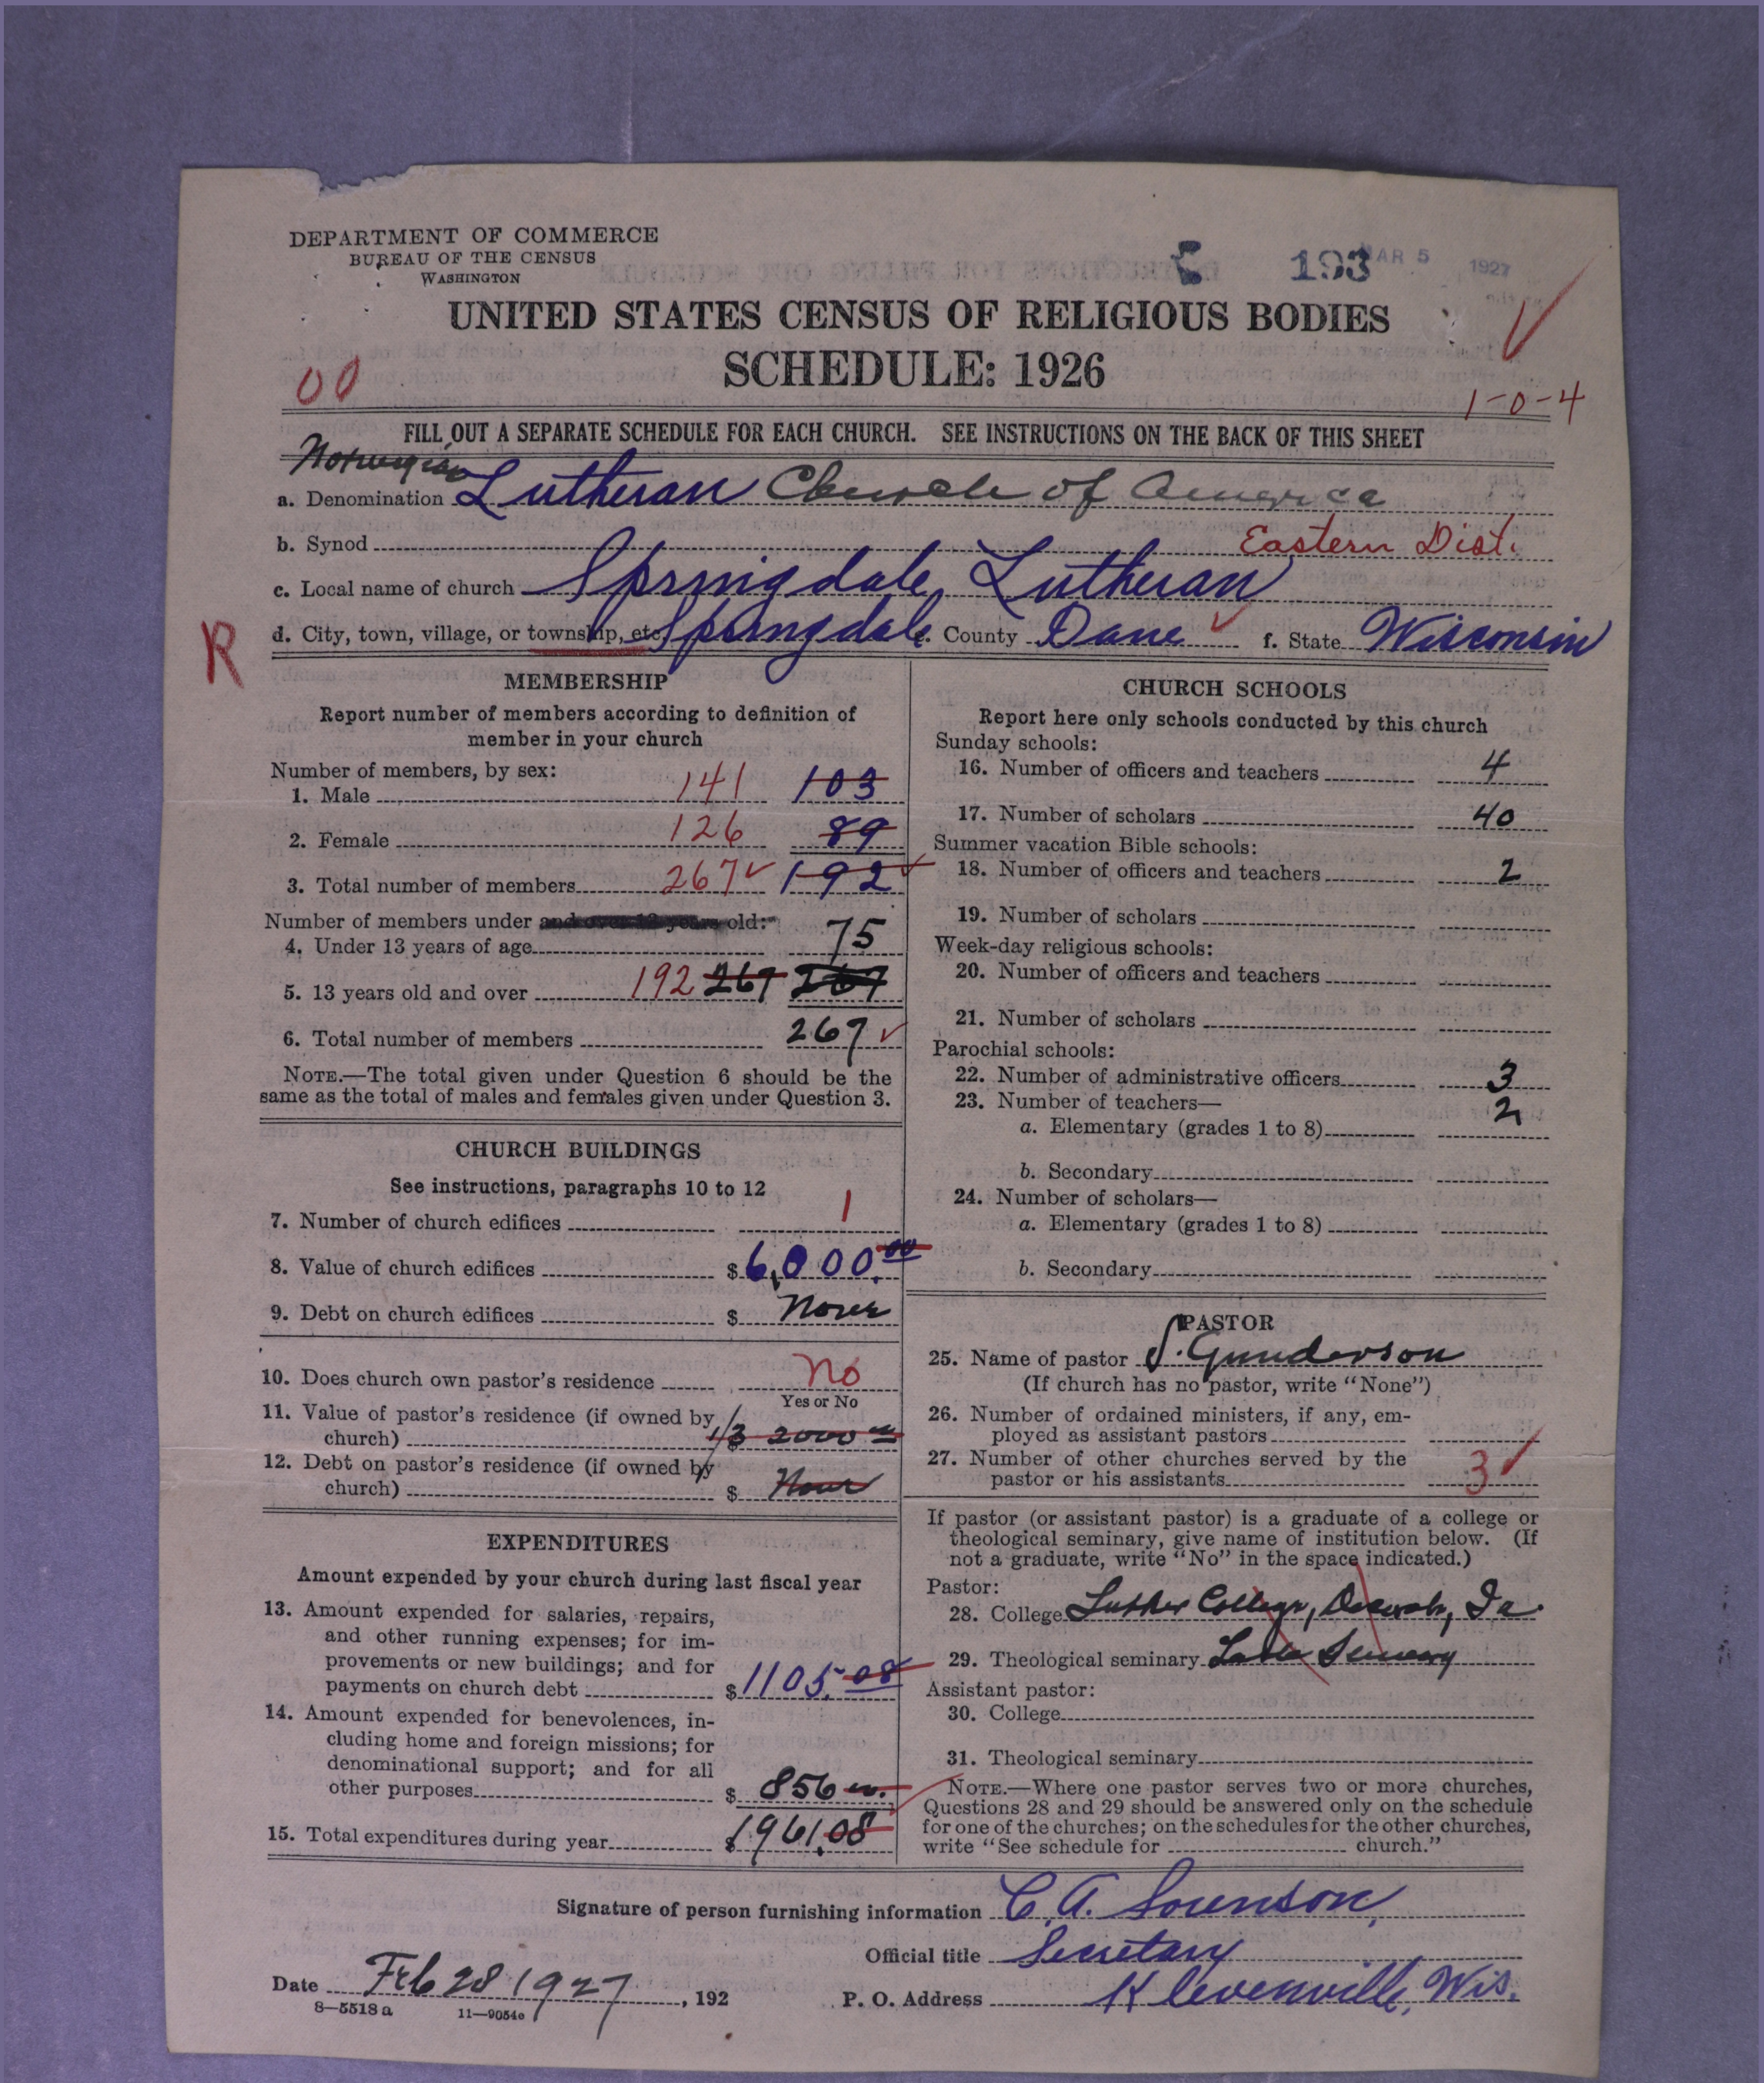 DEPARTMENT OF COMMERCE
BUREAU OF THE CENSUS
WASHINGTON
193 MAR 5 1927
UNITED STATES CENSUS OF RELIGIOUS BODIES
SCHEDULE: 1926
00
1-0-4
FILL OUT A SEPARATE SCHEDULE FOR EACH CHURCH. SEE INSTRUCTIONS ON THE BACK OF THIS SHEET
Norwegian
a. Denomination Lutheran Church of America
b. Synod Eastern Dist.
c. Local name of church Springdale Lutheran
R d. City, town, village, or township, etc. Springdale e. County Dane f. State Wisconsin
MEMBERSHIP
Report number of members according to definition of
member in your church
Number of members, by sex:
1. Male 141 103
2. Female 126 89
3. Total number of members 267 192
Number of members under and over 13 years old:
4. Under 13 years of age 75
5. 13 years old and over 192 267 267
6. Total number of members 267
NOTE.—The total given under Question 6 should be the
same as the total of males and females given under Question 3.
CHURCH BUILDINGS
See instructions, paragraphs 10 to 12
7. Number of church edifices 1
8. Value of church edifices $6,000.00
9. Debt on church edifices $ None
10. Does church own pastor's residence No
Yes or No
11. Value of pastor's residence (if owned by
church) 1/3 2000 00
12. Debt on pastor's residence (if owned by
church) $ None
EXPENDITURES
Amount expended by your church during last fiscal year
13. Amount expended for salaries, repairs,
and other running expenses; for im-
provements or new buildings; and for
payments on church debt $1105.08
14. Amount expended for benevolences, in-
cluding home and foreign missions; for
denominational support; and for all
other purposes $ 856 00.
15. Total expenditures during year $1961.08
CHURCH SCHOOLS
Report here only schools conducted by this church
Sunday schools:
16. Number of officers and teachers 4
17. Number of scholars 40
Summer vacation Bible schools:
18. Number of officers and teachers 2
19. Number of scholars
Week-day religious schools:
20. Number of officers and teachers
21. Number of scholars
Parochial schools:
22. Number of administrative officers 3
23. Number of teachers— 2
a. Elementary (grades 1 to 8)
b. Secondary
24. Number of scholars—
a. Elementary (grades 1 to 8)
b. Secondary
PASTOR
25. Name of pastor S. Gunderson
(If church has no pastor, write "None")
26. Number of ordained ministers, if any, em-
ployed as assistant pastors
27. Number of other churches served by the
pastor or his assistants 3
If pastor (or assistant pastor) is a graduate of a college or
theological seminary, give name of institution below. (If
not a graduate, write "No" in the space indicated.)
Pastor:
28. College Luther College, Decorah, Ia.
29. Theological seminary Luther Seminary
Assistant pastor:
30. College
31. Theological seminary
NOTE.—Where one pastor serves two or more churches,
Questions 28 and 29 should be answered only on the schedule
for one of the churches; on the schedules for the other churches,
write "See schedule for church."
Signature of person furnishing information C. A. Sorenson,
Official title Secretary
Date Feb 28 1927, 192 P. O. Address Klevenville, Wis.
8—5518 a 11—9054c